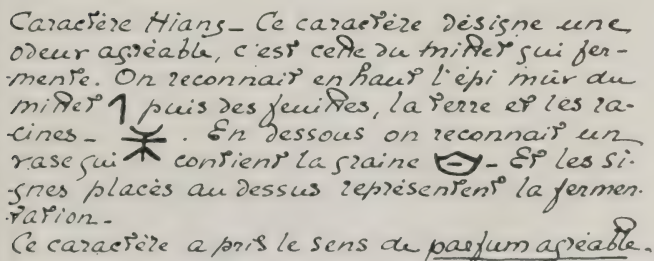 Caractère Hiang_ Ce caractère désigne une
odeur agréable, c'est celle du millet qui fer-
-mente. On reconnait en haut l'épi mûr du
millet puis des feuilles, la terre et les ra-
-cines_ . En dessous on reconnait un
vase qui contient la graine _ Et les si-
-gnes placés au dessus représentent la fermen-
-tation_
Ce caractère a pris le sens de parfum agréable.